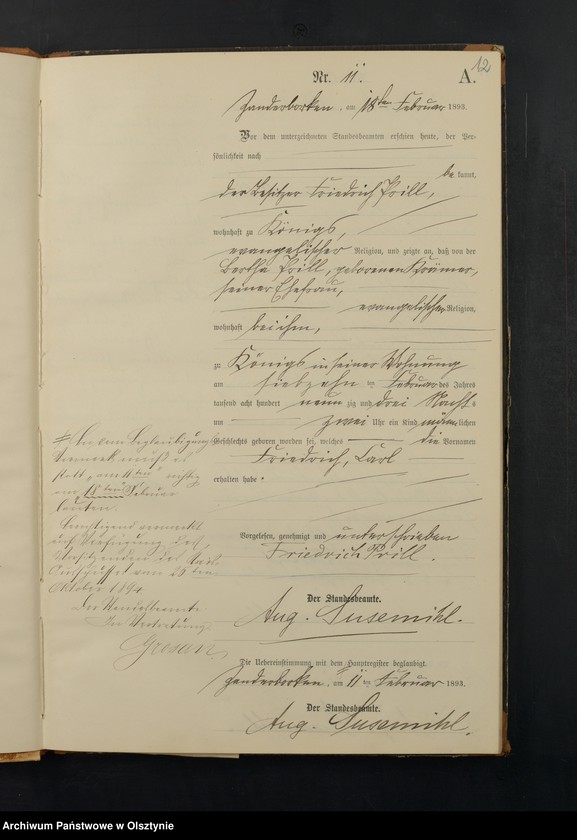 12
Nr. 11. A.
Zanderborken, am 18ten Februar 1893.
Vor dem unterzeichneten Standesbeamten erschien heute, der Per-
sönlichkeit nach
be kannt,
der Besitzer Friedrich Prill,
wohnhaft zu Königs,
evangelischer Religion, und zeigte an, daß von der
Bertha Prill, geborenen Krämer,
seiner Ehefrau,
evangelischer Religion,
wohnhaft bei ihm,
zu Königs in seiner Wohnung
am siebzehn ten Februar des Jahres
tausend acht hundert neun zig und drei Nachts
um zwei Uhr ein Kind männ lichen
Geschlechts geboren worden sei, welches die Vornamen
Friedrich, Carl
erhalten habe.
Vorgelesen, genehmigt und unterschrieben
Friedrich Prill.
Der Standesbeamte.
Aug. Susemihl.
Die Uebereinstimmung mit dem Hauptregister beglaubigt.
Zanderborken, am 11 ten Februar 1893.
Der Standesbeamte.
Aug. Susemihl.
Im Beglaubigungs
vermerk muß es
statt "am 11ten" richtig
am 18ten Februar
lauten.
Berichtigend vermerkt
auf Verfügung des
Vorsitzenden des Kreis-
Ausschusses vom 25ten
Oktober 1894
Der Standesbeamte
In Vertretung:
Archiwum Państwowe w Olsztynie